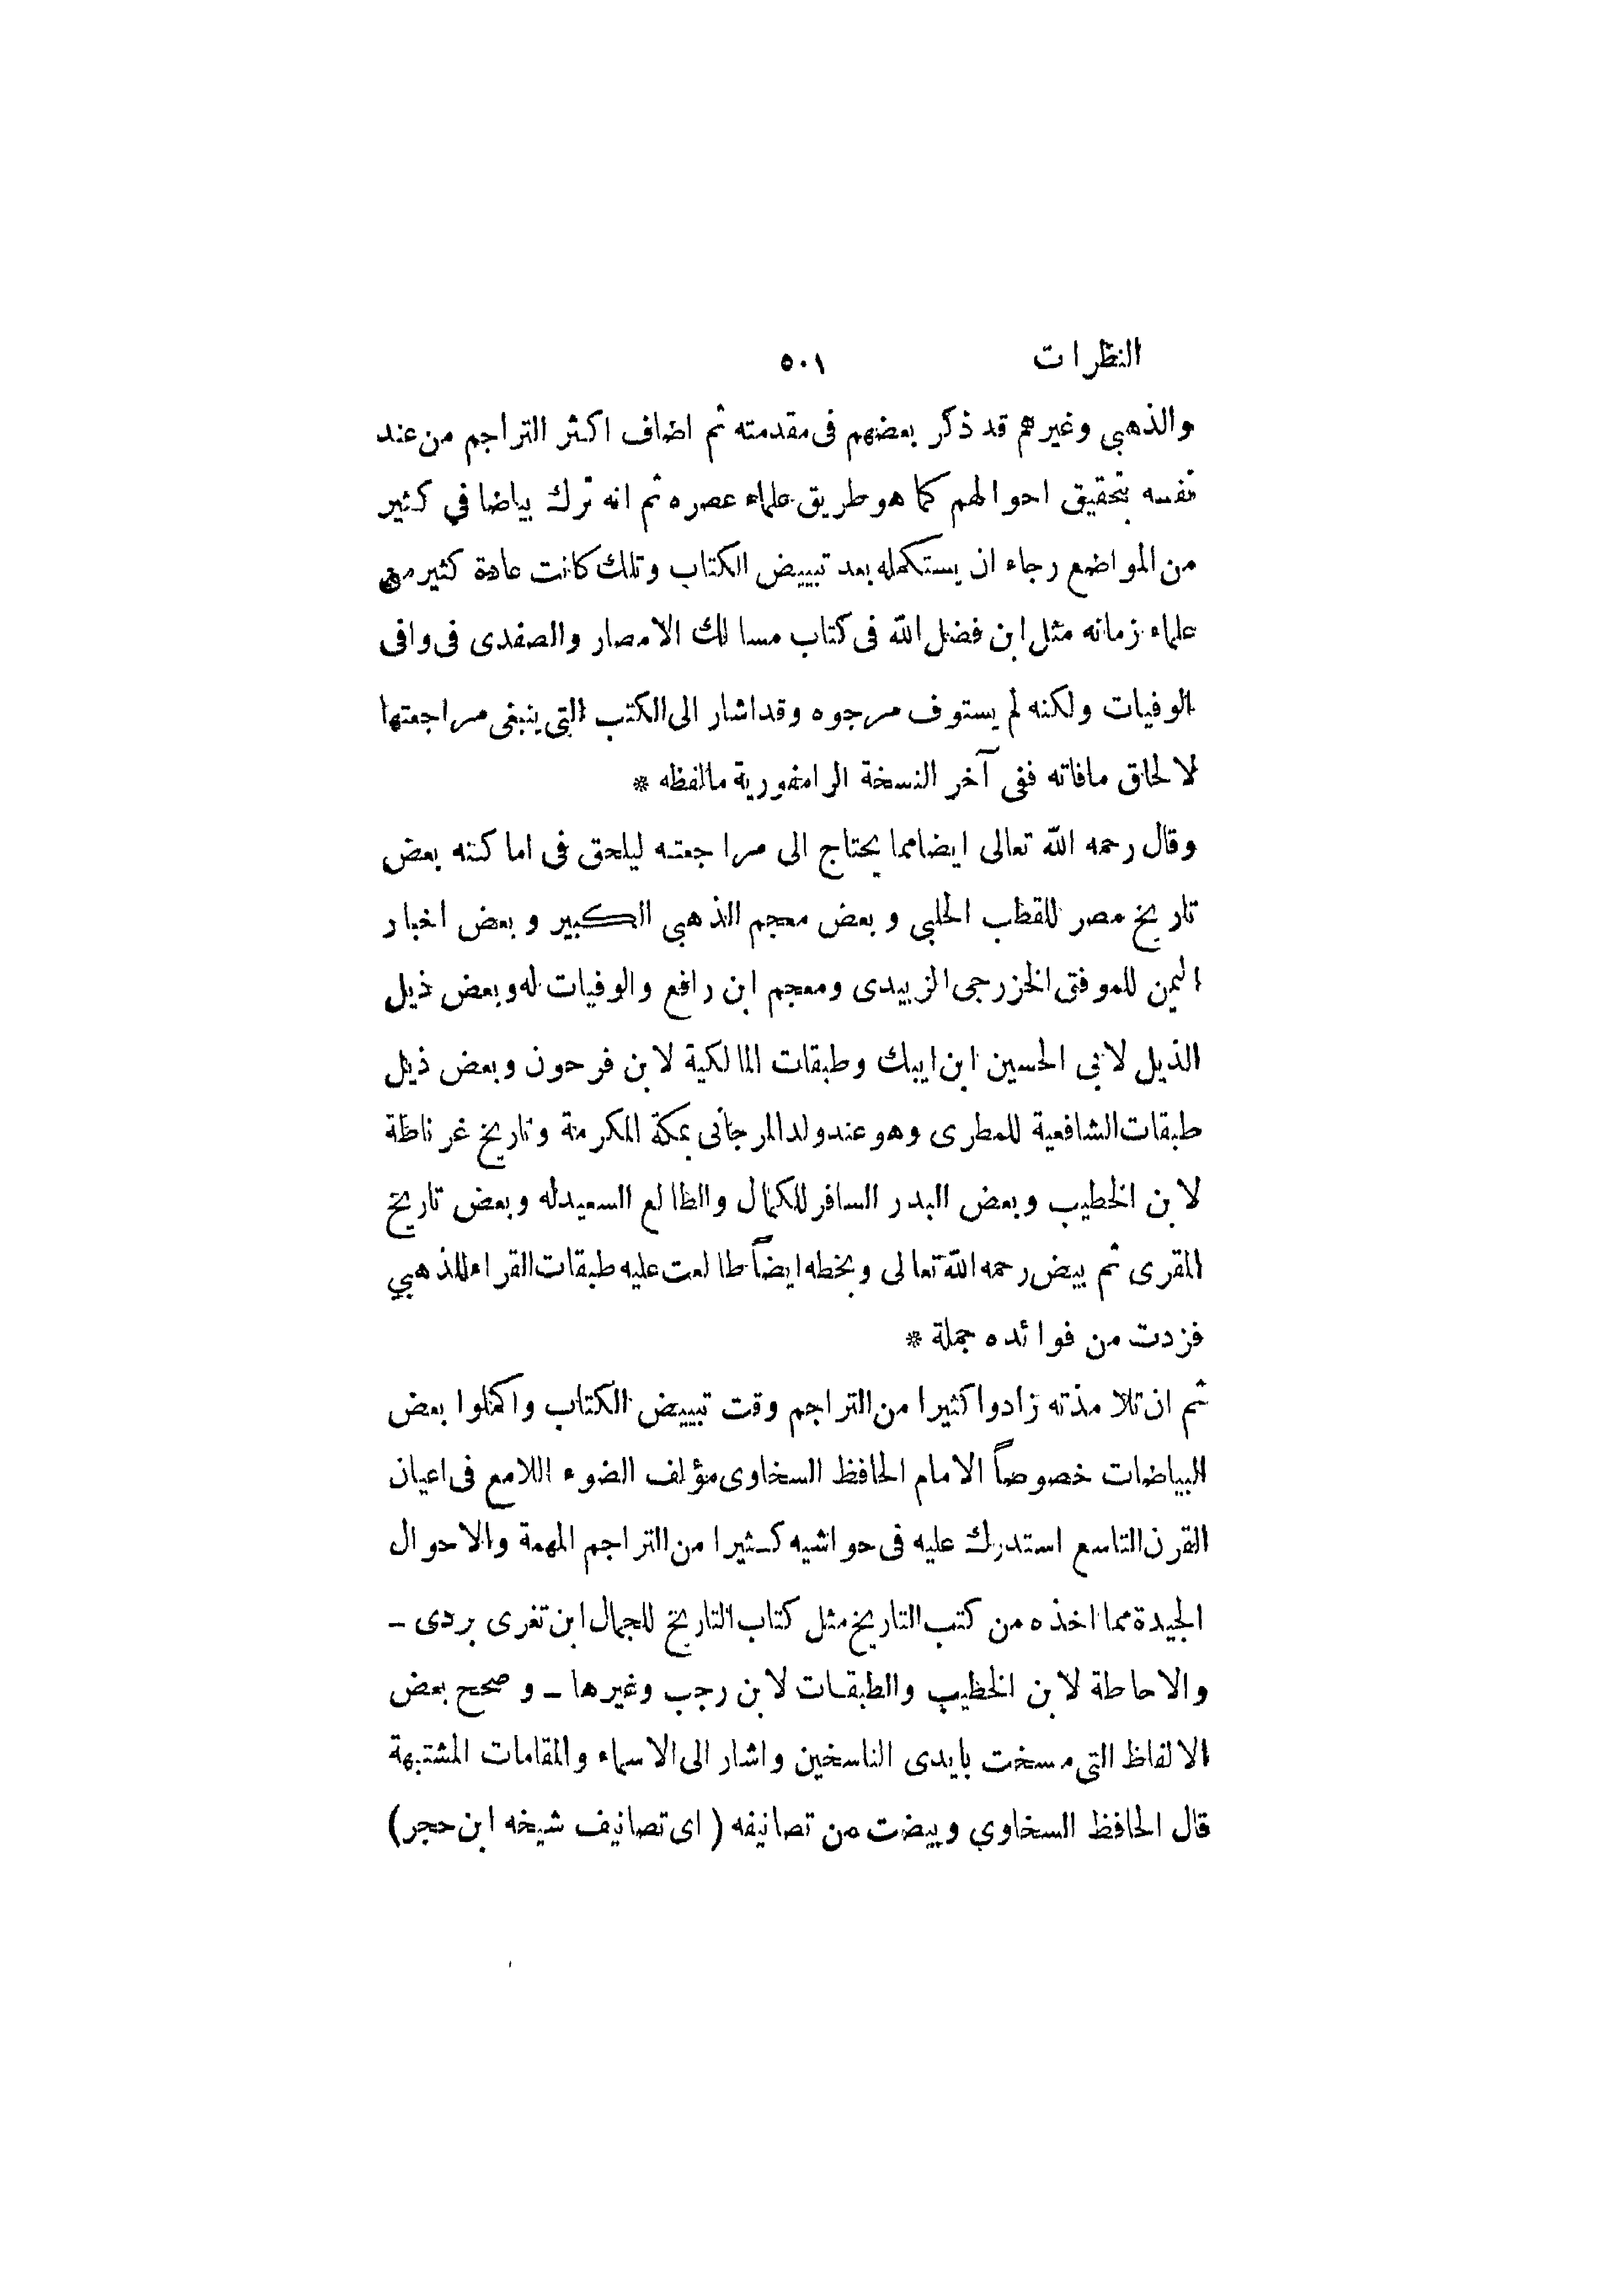 النظرات ٥٠١
والذهبي وغيرهم قد ذكر بعضهم فى مقدمته ثم اضاف اكثر التراجم من عند
نفسه بتحقيق احوالهم كما هو طريق علماء عصره ثم انه ترك بياضا في كثير
من المواضع رجاء ان يستكمله بعد تبييض الكتاب وتلك كانت عادة كثير من
علماء زمانه مثل ابن فضل الله فى كتاب مسالك الامصار والصفدى فى وافى
الوفيات ولكنه لم يستوف مرجوه وقد اشار الى الكتب التى ينبغى مراجعتها
لالحاق مافاته ففى آخر النسخة الرامفورية مالفظه *
وقال رحمه الله تعالى ايضا مما يحتاج الى مراجعته ليلحق فى اماكنه بعض
تاريخ مصر للقطب الحلبي وبعض معجم الذهبى الكبير وبعض اخبار
اليمن للموفق الخزرجى الزبيدى ومعجم ابن رافع والوفيات له وبعض ذيل
الذيل لابى الحسين ابن ايبك وطبقات المالكية لابن فرحون وبعض ذيل
طبقات الشافعية للمطرى وهو عند ولد المرجانى بمكة المكرمة وتاريخ غرناطة
لابن الخطيب وبعض البدر السافر للكمال والطالع السعيد له وبعض تاريخ
المقرى ثم بيض رحمه الله تعالى وبخطه ايضاً طالعت عليه طبقات القراء للذهبي
فزدت من فوائده جملة *
ثم ان تلامذته زادوا كثيرا من التراجم وقت تبييض الكتاب واكملوا بعض
البياضات خصوصاً الامام الحافظ السخاوى مؤلف الضوء اللامع فى اعيان
القرن التاسع استدرك عليه فى حواشيه كثيرا من التراجم المهمة والاحوال
الجيدة مما اخذه من كتب التاريخ مثل كتاب التاريخ للجمال ابن تغرى بردى ـ
والاحاطة لابن الخطيب والطبقات لابن رجب وغيرها ـ وصحح بعض
الالفاظ التى مسخت بايدى الناسخين واشار الى الاسماء والمقامات المشتبهة
قال الحافظ السخاوي وبيضت من تصانيفه ( اى تصانيف شيخه ابن حجر)